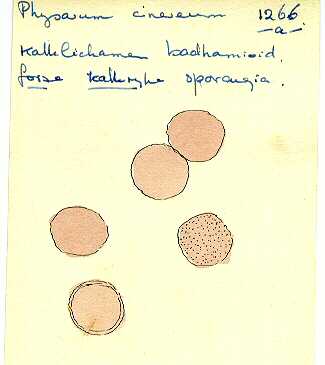 Physarum cinereum 1266
a.
Kalklichamen badhamioid,
forse kalkrijke sporangia.